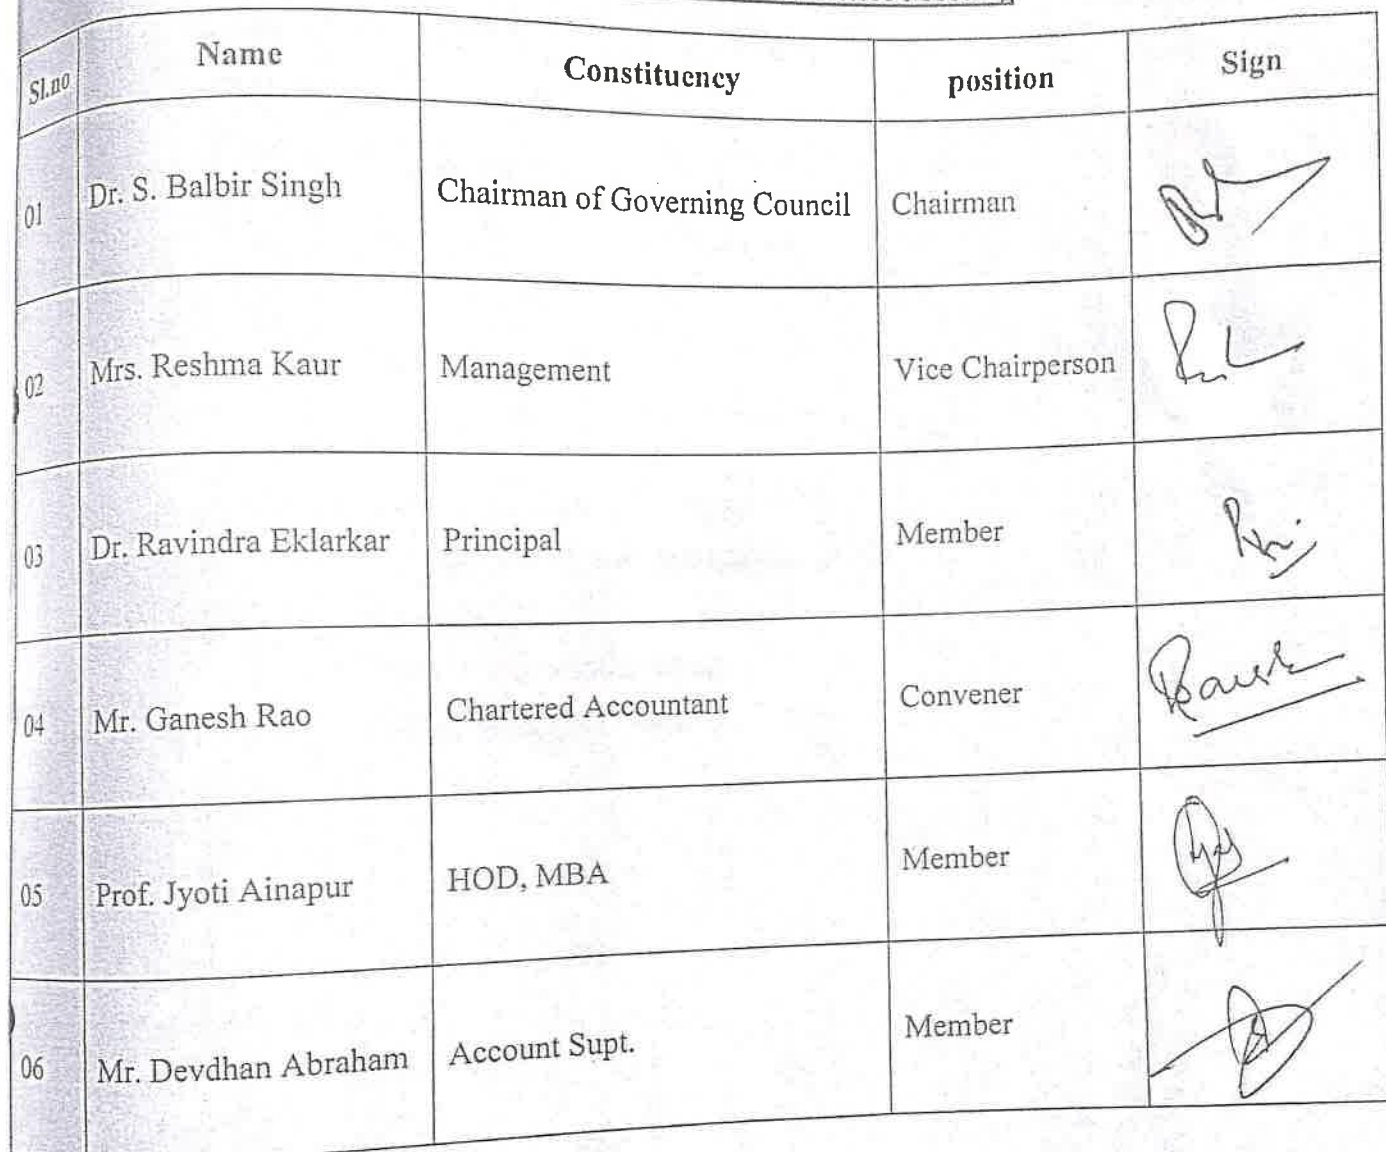 Sl.no Name Constituency position Sign
01 Dr. S. Balbir Singh Chairman of Governing Council Chairman
02 Mrs. Reshma Kaur Management Vice Chairperson
03 Dr. Ravindra Eklarkar Principal Member
04 Mr. Ganesh Rao Chartered Accountant Convener
05 Prof. Jyoti Ainapur HOD, MBA Member
06 Mr. Devdhan Abraham Account Supt. Member